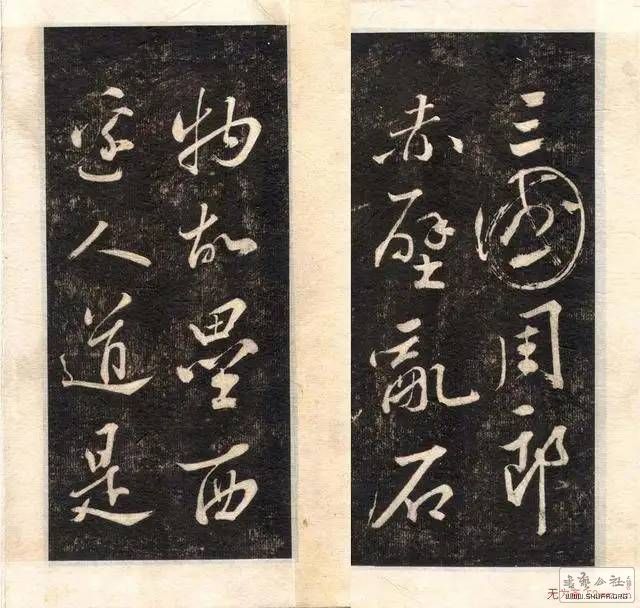 物故壘西
邊人道是
三國周郎
赤壁亂石
書藝公社
WWW.SHUFA.ORG